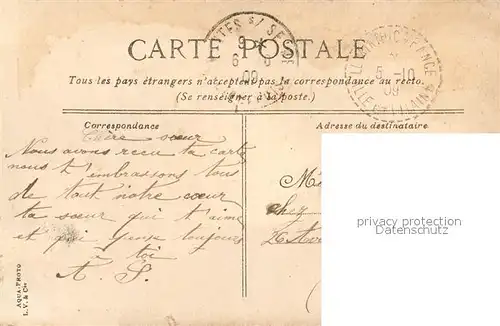 CARTE POSTALE
Tous les pays étrangers n'acceptent pas la correspondance au recto.
(Se renseigner à la poste.)
Correspondance
Adresse du destinataire
Chère sœur
Nous avons recu ta carte
nous t'embrassons tous
de tout notre cœur
ta sœur qui t'aime
et qui pense toujours
à toi
A. S.
chez
privacy protection
for our users
AQUA-PHOTO
L. V. & Cie
5-10
09